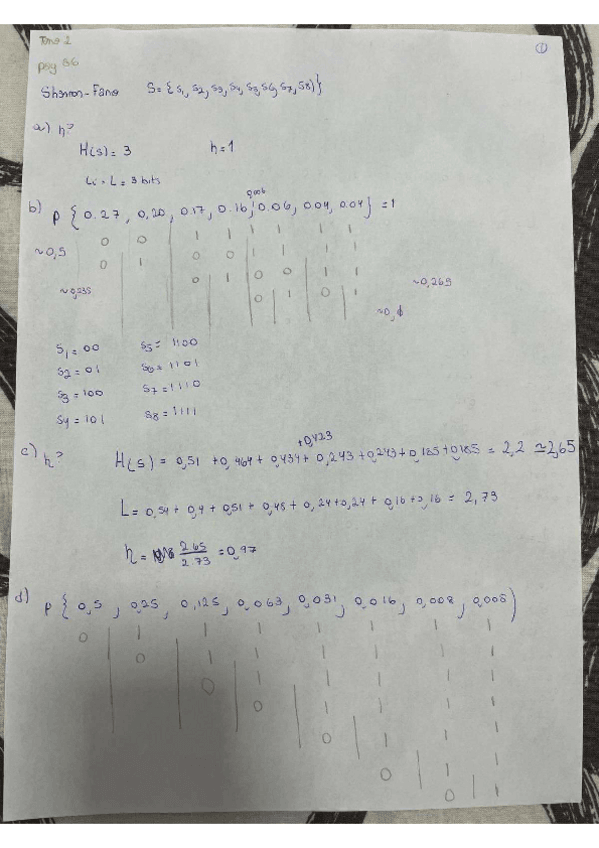 Tema 2
①
pag 56
Shannon-Fano S = {S1, S2, S3, S4, S5, S6, S7, S8)}
a) h?
H(s) = 3 h = 1
Li = L = 3 bits
0,006
b) P {0.27, 0.20, 0.17, 0.16, 0.06, 0.04, 0.04} = 1
0 0 1 1 1 1 1 1
~0,5 0 1 0 0 1 1 1 1
0 1 0 0 1 1
~0,535 0 1 0 1
~0,265
S1 = 00 S5 = 1100
S2 = 01 S6 = 1101
S3 = 100 S7 = 1110
S4 = 101 S8 = 1111
+0,423
c) h? H(s) = 0,51 + 0,464 + 0,434 + 0,243 + 0,243 + 0,185 + 0,185 = 2,2 ≃ 2,65
L = 0,54 + 0,4 + 0,51 + 0,48 + 0,24 + 0,24 + 0,16 + 0,16 = 2,73
h = 2.65 / 2.73 = 0,97
d) P {0,5, 0,25, 0,125, 0,063, 0,031, 0,016, 0,008, 0,008)
0 1 1 1 1 1 1 1
0 1 1 1 1 1 1
0 1 1 1 1 1
0 1 1 1 1
0 1 1 1
0 1 1
0 1